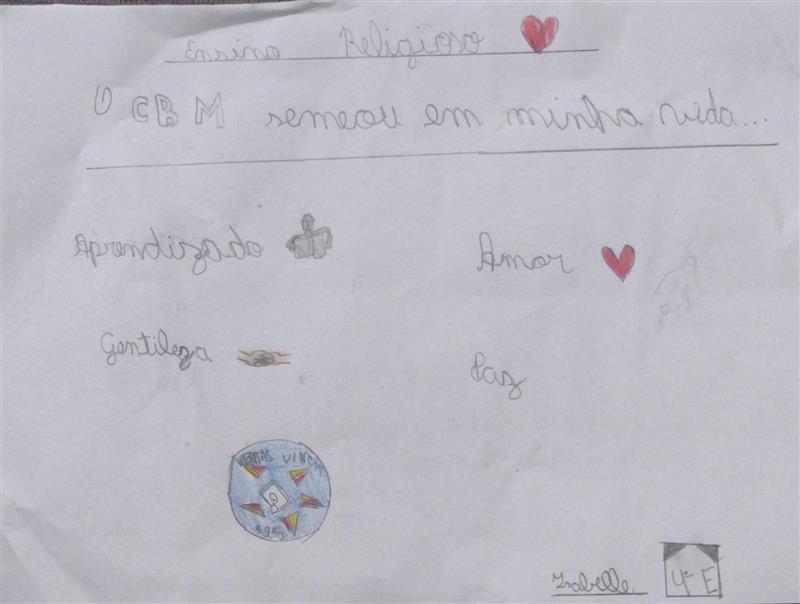 Ensino Religioso
O CBM semeou em minha vida...
Aprendizado
Amor
Gentileza
Paz
VERITAS VINCIT
Izabelle
4º E